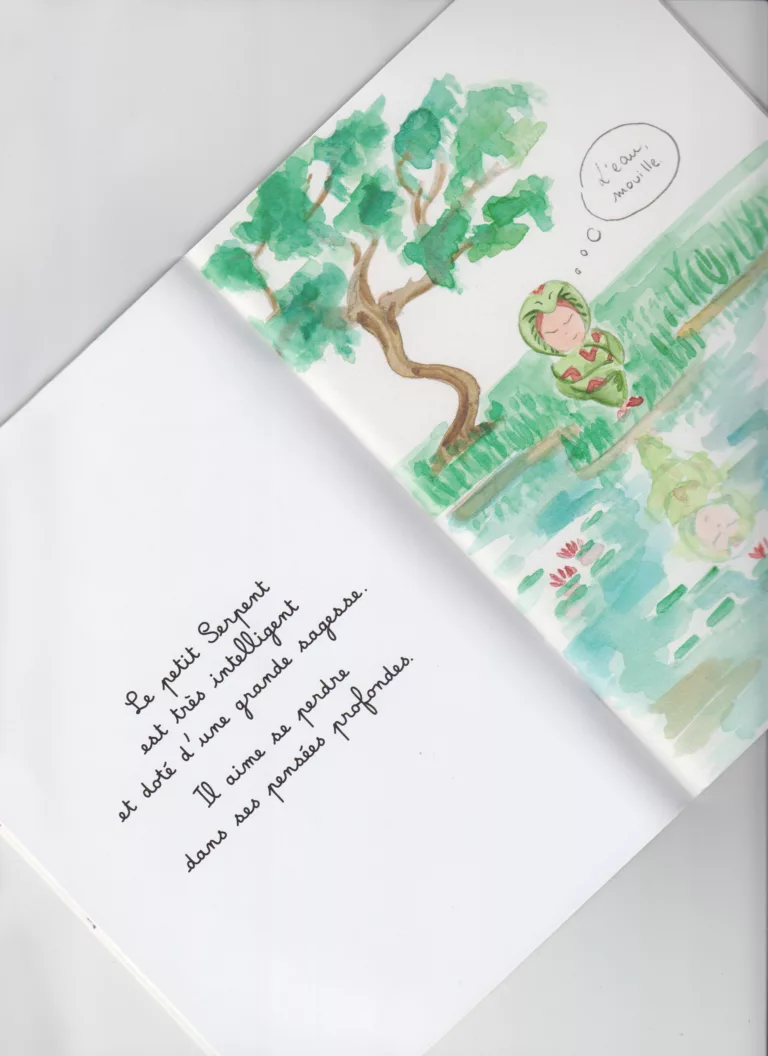 Le petit Serpent
est très intelligent
et doté d'une grande sagesse.
Il aime se perdre
dans ses pensées profondes.
L'eau,
mouille.